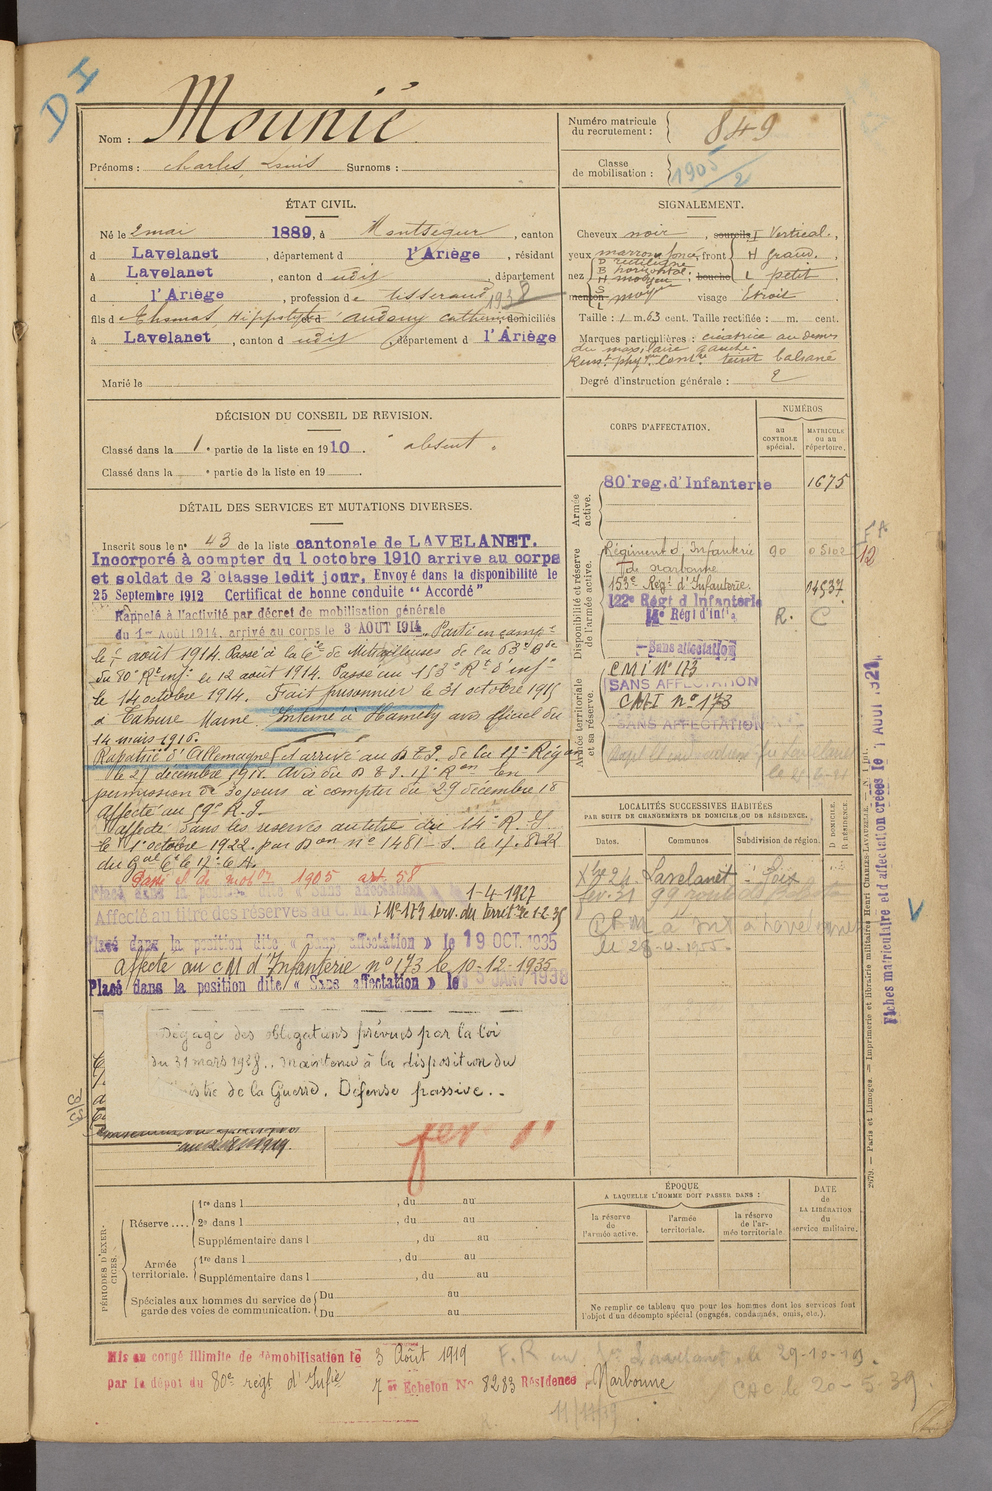 D I
Nom : Mounié
Prénoms : Charles, Louis Surnoms :
Numéro matricule
du recrutement : 849
Classe
de mobilisation : 1905/2
ÉTAT CIVIL.
Né le 2 mai 1889, à Montségur, canton
d Lavelanet, département d l'Ariège, résidant
à Lavelanet, canton d udit, département
d l'Ariège, profession de tisserand 1938
fils d Thomas, Hippolyte et d Audouy Catherine, domiciliés
à Lavelanet, canton d udit, département d l'Ariège
Marié le
SIGNALEMENT.
Cheveux noir, sourcils I Vertical,
yeux marrons foncé, front H grand,
nez D rectiligne B horizontal, H moyen bouche L petit
S L
menton moyen visage Etroit
Taille : 1 m. 63 cent. Taille rectifiée : m. cent.
Marques particulières : cicatrice au dessus
du maxillaire gauche.
Rens.t phy.que Com.re teint basané
Degré d'instruction générale : 2
DÉCISION DU CONSEIL DE REVISION.
Classé dans la 1e partie de la liste en 1910. "absent"
Classé dans la e partie de la liste en 19
CORPS D'AFFECTATION.
NUMÉROS
au
CONTROLE
spécial.
MATRICULE
ou au
répertoire.
Armée
active.
80e reg. d'Infanterie 1675
Disponibilité et réserve
de l'armée active.
Régiment d'Infanterie 90 05102 12
de Narbonne
153e Régt d'Infanterie. 04537
122e Régt d'Infanterie
14e Régt d'infie R. C
Sans affectation
Armée territoriale
et sa réserve.
CMI N° 173
SANS AFFECTATION
CMI n° 173
SANS AFFECTATION
DÉTAIL DES SERVICES ET MUTATIONS DIVERSES.
Inscrit sous le n° 43 de la liste cantonale de LAVELANET.
Incorporé à compter du 1 octobre 1910 arrive au corps
et soldat de 2e classe ledit jour. Envoyé dans la disponibilité le
25 Septembre 1912 Certificat de bonne conduite "Accordé"
Rappelé à l'activité par décret de mobilisation générale
du 1er Août 1914. arrivé au corps le 3 AOUT 1914 Parti en campne
le août 1914. Passé à la Cie de Mitrailleuses de la 63e Bde
du 80e Rt infie le 12 août 1914. Passé au 153e Rt d'infie
le 14 octobre 1914. Fait prisonnier le 31 octobre 1915
à Tahure Marne Interné à Hameln avis officiel du
14 mars 1916.
Rapatrié d'Allemagne et arrivé au D.T.I. de la 17e Région
le 27 décembre 1918. Avis du D.T.I. 17e Ron en
permission de 30 jours à compter du 29 décembre 18
Affecté au 59e R.I.
Affecté dans les réserves au titre du 14e R.I.
le 1er octobre 1922. par Don n° 1461-S. le 17.8.22
du Gal Ct le 17e C.A.
Passé cl de mobon 1905 art. 58
Placé dans la position dite « Sans affectation » le 1-4-1927
Affecté au titre des réserves au C.M.I N° 173 serv. du Territre le 1-2-35
Placé dans la position dite « Sans affectation » le 19 OCT. 1935
Affecté au CM d'Infanterie n° 173 le 10-12-1935
Placé dans la position dite « Sans affectation » le 3 JANV 1938
Dégagé des obligations prévues par la loi
du 31 mars 1928.. Maintenu à la disposition du
istre de la Guerre. Défense passive..
LOCALITÉS SUCCESSIVES HABITÉES
PAR SUITE DE CHANGEMENTS DE DOMICILE OU DE RÉSIDENCE.
Dates. Communes. Subdivision de région. D DOMICILE. R RÉSIDENCE.
Xbre 24. Lavelanet Foix
fev. 31
PÉRIODES D'EXERCICES.
Réserve....
1re dans l , du au
2e dans l , du au
Supplémentaire dans l , du au
Armée
territoriale.
1re dans l , du au
Supplémentaire dans l , du au
Spéciales aux hommes du service de
garde des voies de communication.
Du au
Du au
ÉPOQUE
A LAQUELLE L'HOMME DOIT PASSER DANS :
la réserve
de
l'armée active.
l'armée
territoriale.
la réserve
de l'ar-
mée territoriale
DATE
de
LA LIBÉRATION
du
service militaire.
Ne remplir ce tableau que pour les hommes dont les services font
l'objet d'un décompte spécial (engagés, condamnés, omis, etc.).
Mis en congé illimité de démobilisation le 3 Août 1919
par le dépôt du 80e regt d'Infie 7e Echelon N° 8283 Résidence Narbonne
le 29-10-19.
CAC le 20-5-39
11/11/39
2079. — Paris et Limoges. — Imprimerie et librairie militaires Henri CHARLES-LAVAUZELLE.
Fiches matriculaire et d'affectation créées le 1 AOUT 1921